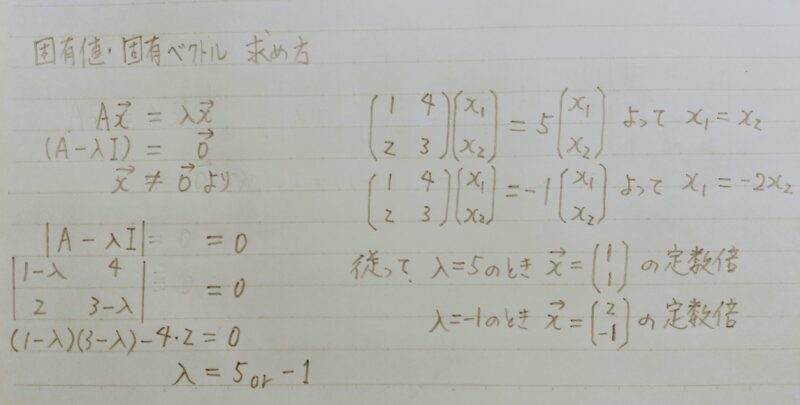 固有値・固有ベクトル 求め方
Ax⃗ = λx⃗
(A-λI) = 0⃗
x⃗ ≠ 0⃗ より
|A - λI| = 0
|1-λ 4|
|2 3-λ| = 0
(1-λ)(3-λ)-4・2 = 0
λ = 5 or -1
(1 4)(x₁) = 5(x₁) よって x₁ = x₂
(2 3)(x₂) (x₂)
(1 4)(x₁) = -1(x₁) よって x₁ = -2x₂
(2 3)(x₂) (x₂)
従って、λ=5のとき x⃗ = (1 1) の定数倍
λ=-1のとき x⃗ = (2 -1) の定数倍